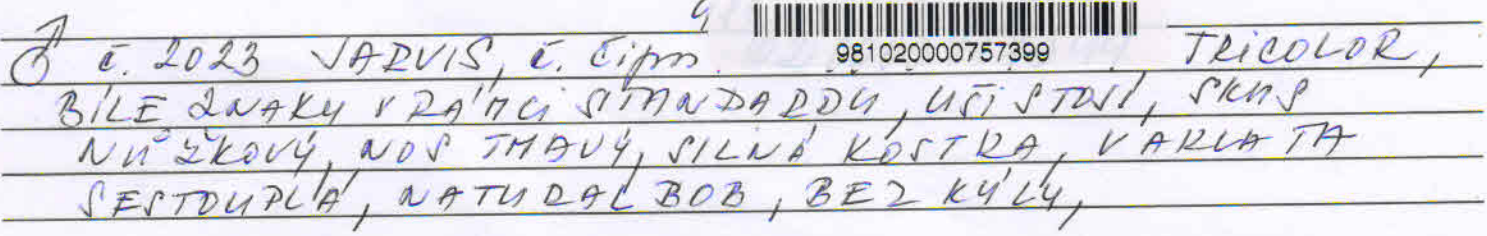 ♂ č. 2023 JARVIS, č. čipu 981020000757399 TRICOLOR,
BÍLÉ ZNAKY V RÁMCI STANDARDU, UŠI STOJÍ, SKUS
NŮŽKOVÝ, NOS TMAVÝ, SILNÁ KOSTRA, VARLATA
SESTOUPLÁ, NATURAL BOB, BEZ KÝLY,